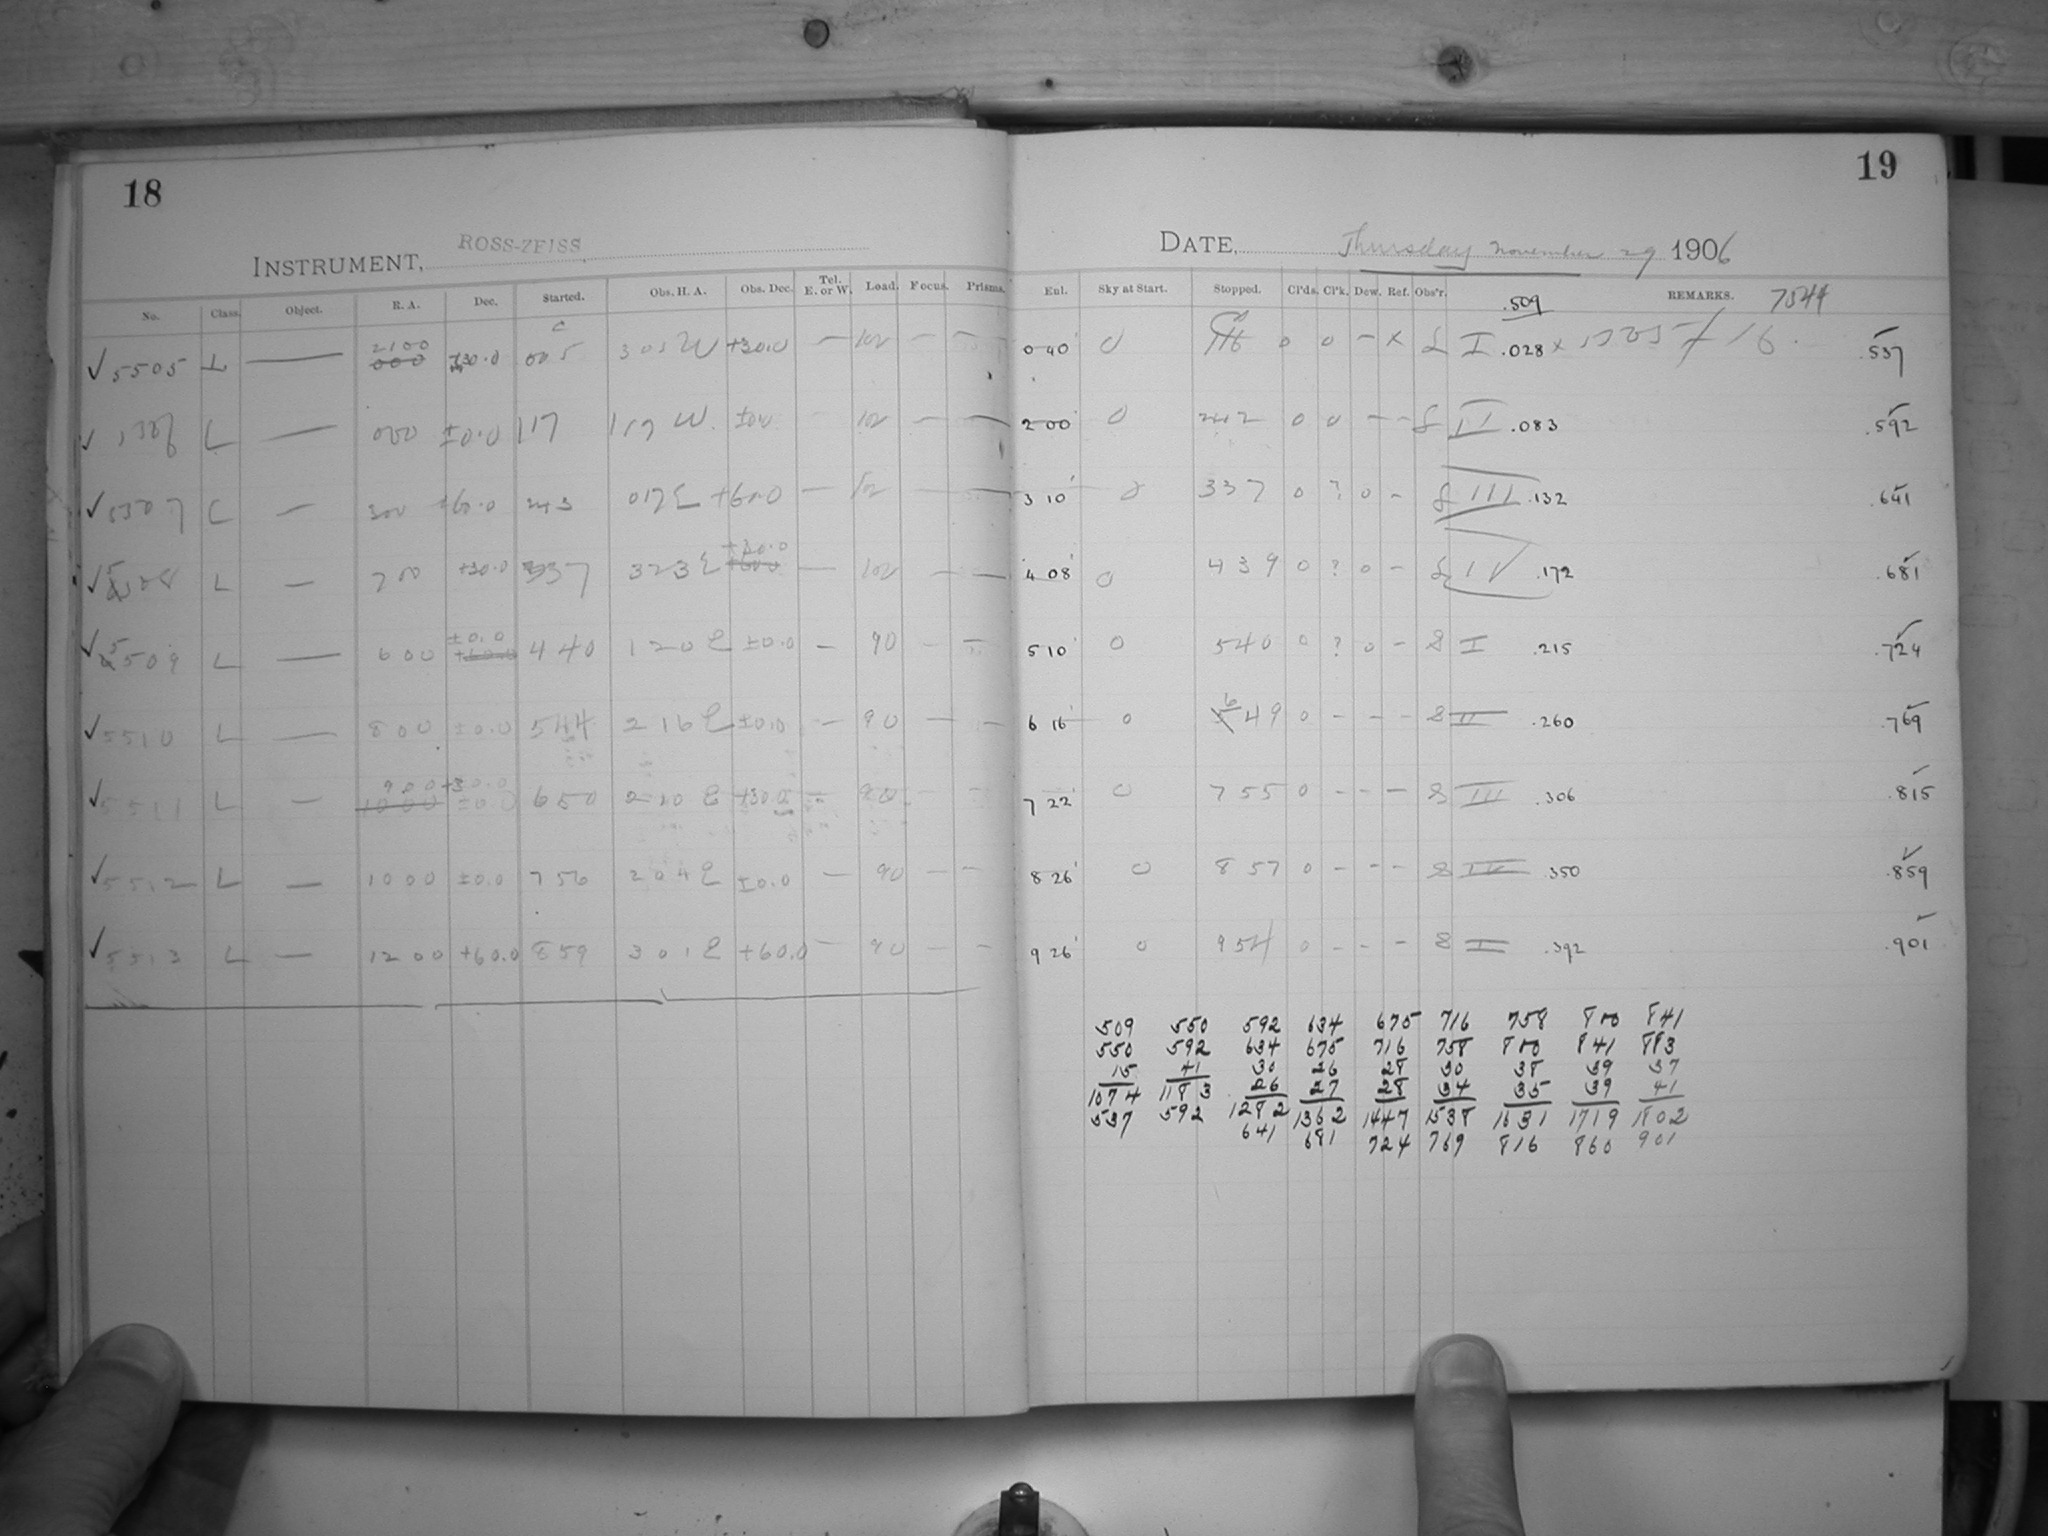 18
INSTRUMENT, ROSS-ZEISS
No. Class. Object. R. A. Dec. Started. Obs. H. A. Obs. Dec. Tel. E. or W. Load. Focus. Prisms.
✓ 5505 L — 2100 +30.0 005 +30.0 —
✓ L — 000 ±0.0 117 — —
✓ — 300 243 017 E +60.0 — —
✓ L — 700 +30.0 337 323 E +30.0 — — —
✓ 5509 L — 600 ±0.0 440 120 E ±0.0 — 90 — —
✓ 5510 L — 800 ±0.0 544 216 E ±0.0 — 90 — —
✓ 5511 L — 900 +30.0 650 210 E +30.0 — 90 — —
✓ 5512 L — 1000 ±0.0 756 204 E ±0.0 — 90 — —
✓ 5513 L — 1200 +60.0 859 301 E +60.0 — 90 — —
19
DATE, Thursday November 29 1906
Eul. Sky at Start. Stopped. Cl'ds. Cl'k. Dew. Ref. Obs'r. .509 REMARKS. 7544
0 40 0 0 0 — × I .028 .537
2 00 0 242 0 0 — — II .083 .592
3 10 0 337 0 ? 0 — III .132 .641
4 08 0 439 0 ? 0 — IV .172 .681
5 10 0 540 0 ? 0 — I .215 .724
6 16 0 649 0 — — — II .260 .769
7 22 0 755 0 — — — III .306 .815
8 26 0 857 0 — — — IV .350 .859
9 26 0 954 0 — — — I .392 .901
509 550 592 634 675 716 758 800 841
550 592 634 675 716 758 800 841 883
15 41 30 26 28 30 38 39 37
26 27 28 34 35 39 41
1074 1183 1282 1362 1447 1538 1631 1719 1802
537 592 641 681 724 769 816 860 901